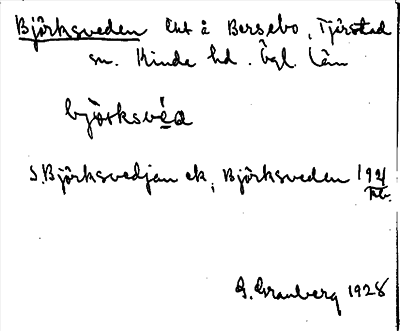 Björksveden lht å Bersebo, Tjärstad
sn. Kinda hd. Ögl. län
björksvéd
S. Björksvedjan ek, Björksveden
G. Granberg 1928